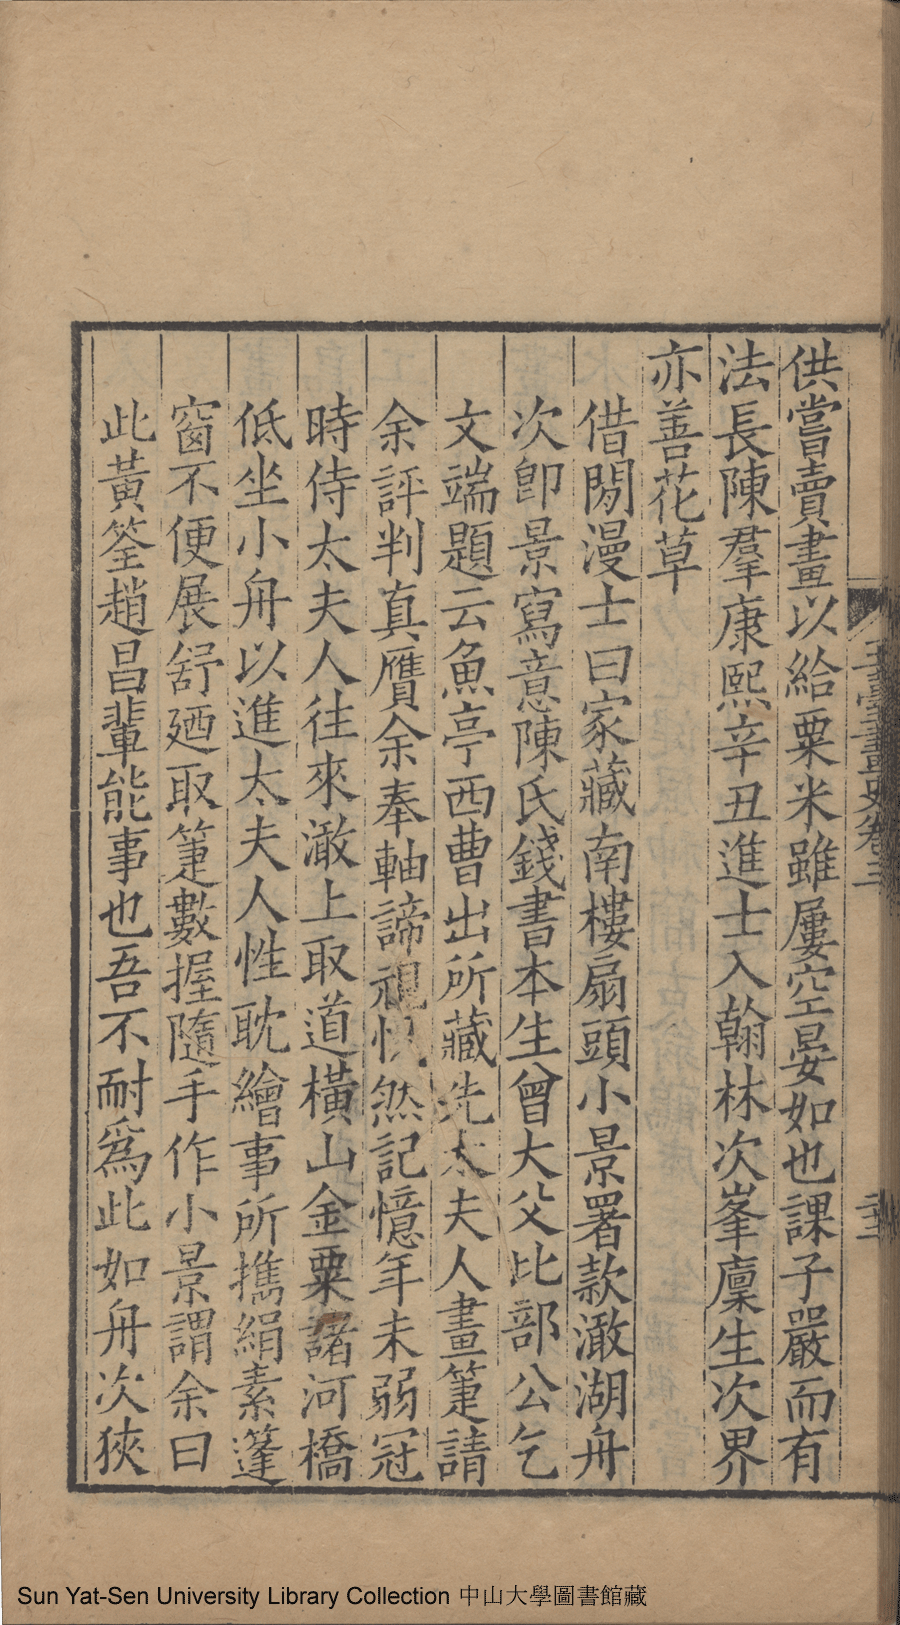 供嘗賣畫以給粟米雖屢空晏如也課子嚴而有
法長陳羣康熙辛丑進士入翰林次峯廩生次界
亦善花草
借閒漫士曰家藏南樓扇頭小景署款澉湖舟
次卽景寫意陳氏錢書本生曾大父比部公乞
文端題云魚亭西曹出所藏先太夫人畫箑請
余評判真贋余奉軸諦視怳然記憶年未弱冠
時侍太夫人往來澉上取道橫山金粟諸河橋
低坐小舟以進太夫人性耽繪事所攜絹素篷
窗不便展舒廼取箑數握隨手作小景謂余曰
此黃筌趙昌輩能事也吾不耐爲此如舟次狹
玉臺畫史卷三
Sun Yat-Sen University Library Collection 中山大學圖書館藏